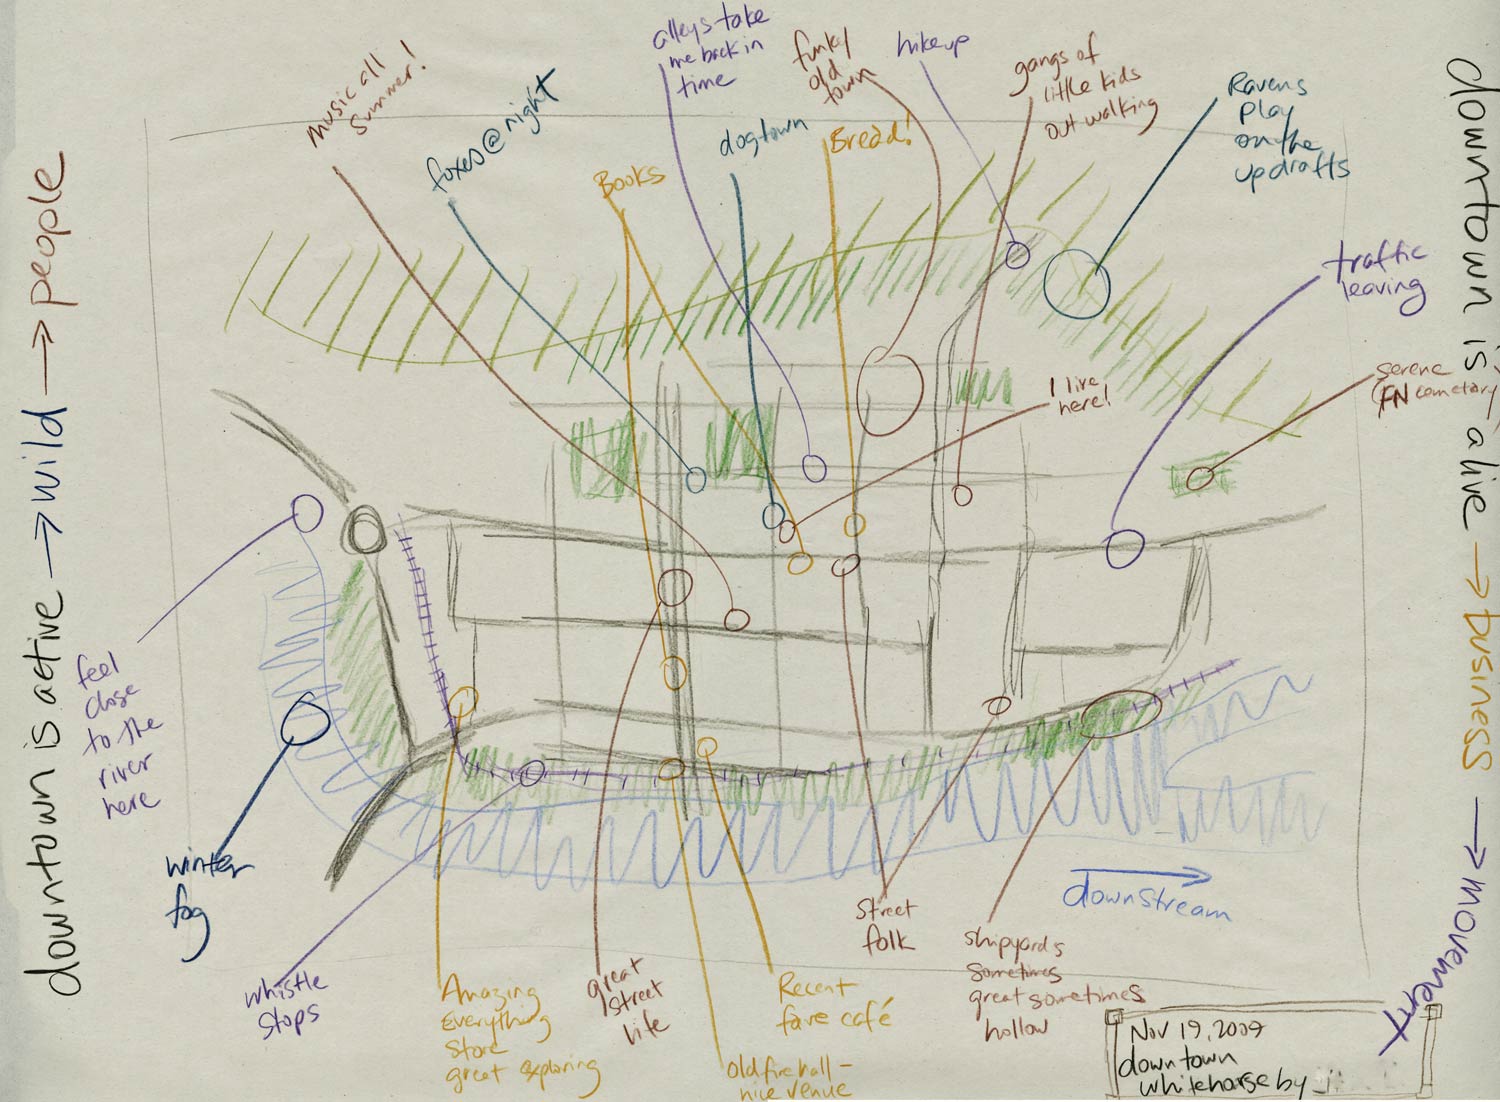 music all
summer!
foxes@night
Books
alleys take
me back in
time
dogtown
funky
old
town
Bread!
hike up
gangs of
little kids
out walking
Ravens
play
on the
updrafts
traffic
leaving
serene
FN cemetary
I live
here!
feel
close
to the
river
here
winter
fog
whistle
stops
Amazing
everything
store
great exploring
great
street
life
Old fire hall –
nice venue
Recent
fave café
street
folk
shipyards
sometimes
great sometimes
hollow
downstream
downtown is active → wild → people
downtown is alive → business → movement
Nov 19, 2009
downtown
whitehorse by